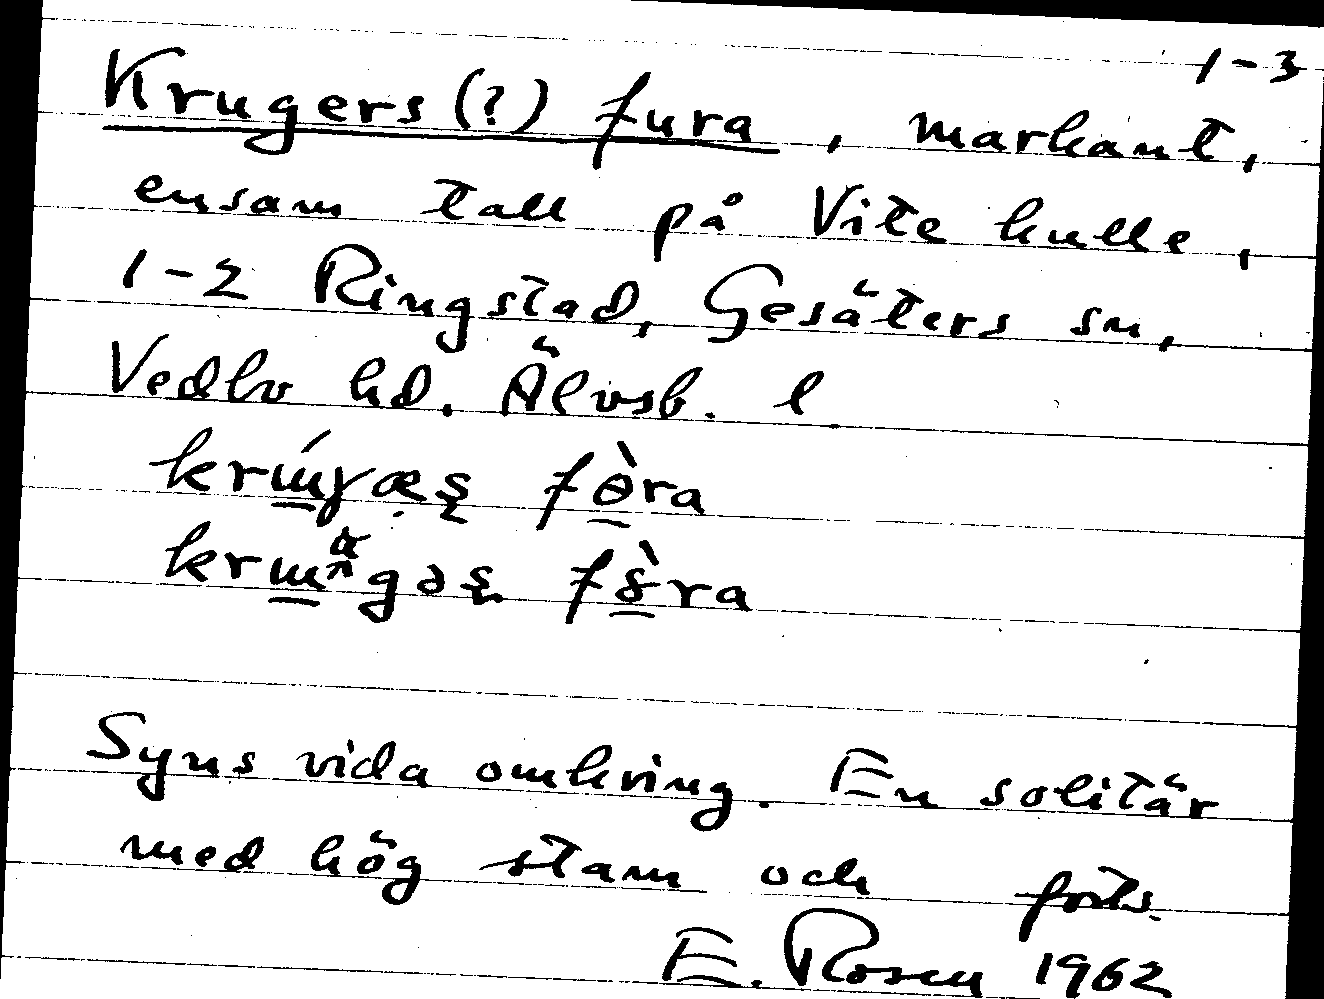 1-3
Krugers (?) fura, markant,
ensam tall på Vite kulle,
1-2 Ringstad, Gesäters sn,
Vedbo hd. Älvsb. l
fòra
Syns vida omkring. En solitär
med hög stam och forts.
E. Rosen 1962